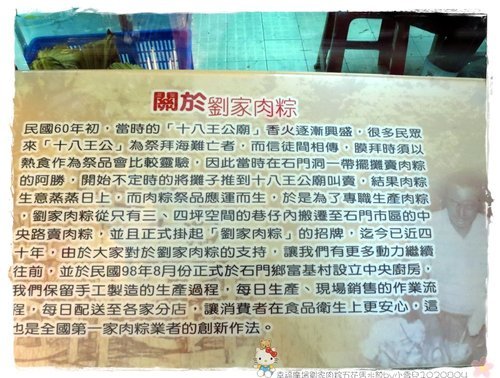 關於劉家肉粽
民國60年初，當時的「十八王公廟」香火逐漸興盛，很多民眾
來「十八王公」為祭拜海難亡者，而信徒間相傳，膜拜時須以
熱食作為祭品會比較靈驗，因此當時在石門洞一帶擺攤賣肉粽
的阿勝，開始不定時的將攤子推到十八王公廟叫賣，結果肉粽
生意蒸蒸日上，而肉粽祭品應運而生，於是為了專職生產肉粽
，劉家肉粽從只有三、四坪空間的巷仔內搬遷至石門市區的中
央路賣肉粽，並且正式掛起「劉家肉粽」的招牌，迄今已近四
十年，由於大家對於劉家肉粽的支持，讓我們有更多動力繼續
往前，並於民國98年8月份正式於石門鄉富基村設立中央廚房，
我們保留手工製造的生產過程，每日生產、現場銷售的作業流
程，每日配送至各家分店，讓消費者在食品衛生上更安心，這
也是全國第一家肉粽業者的創新作法。